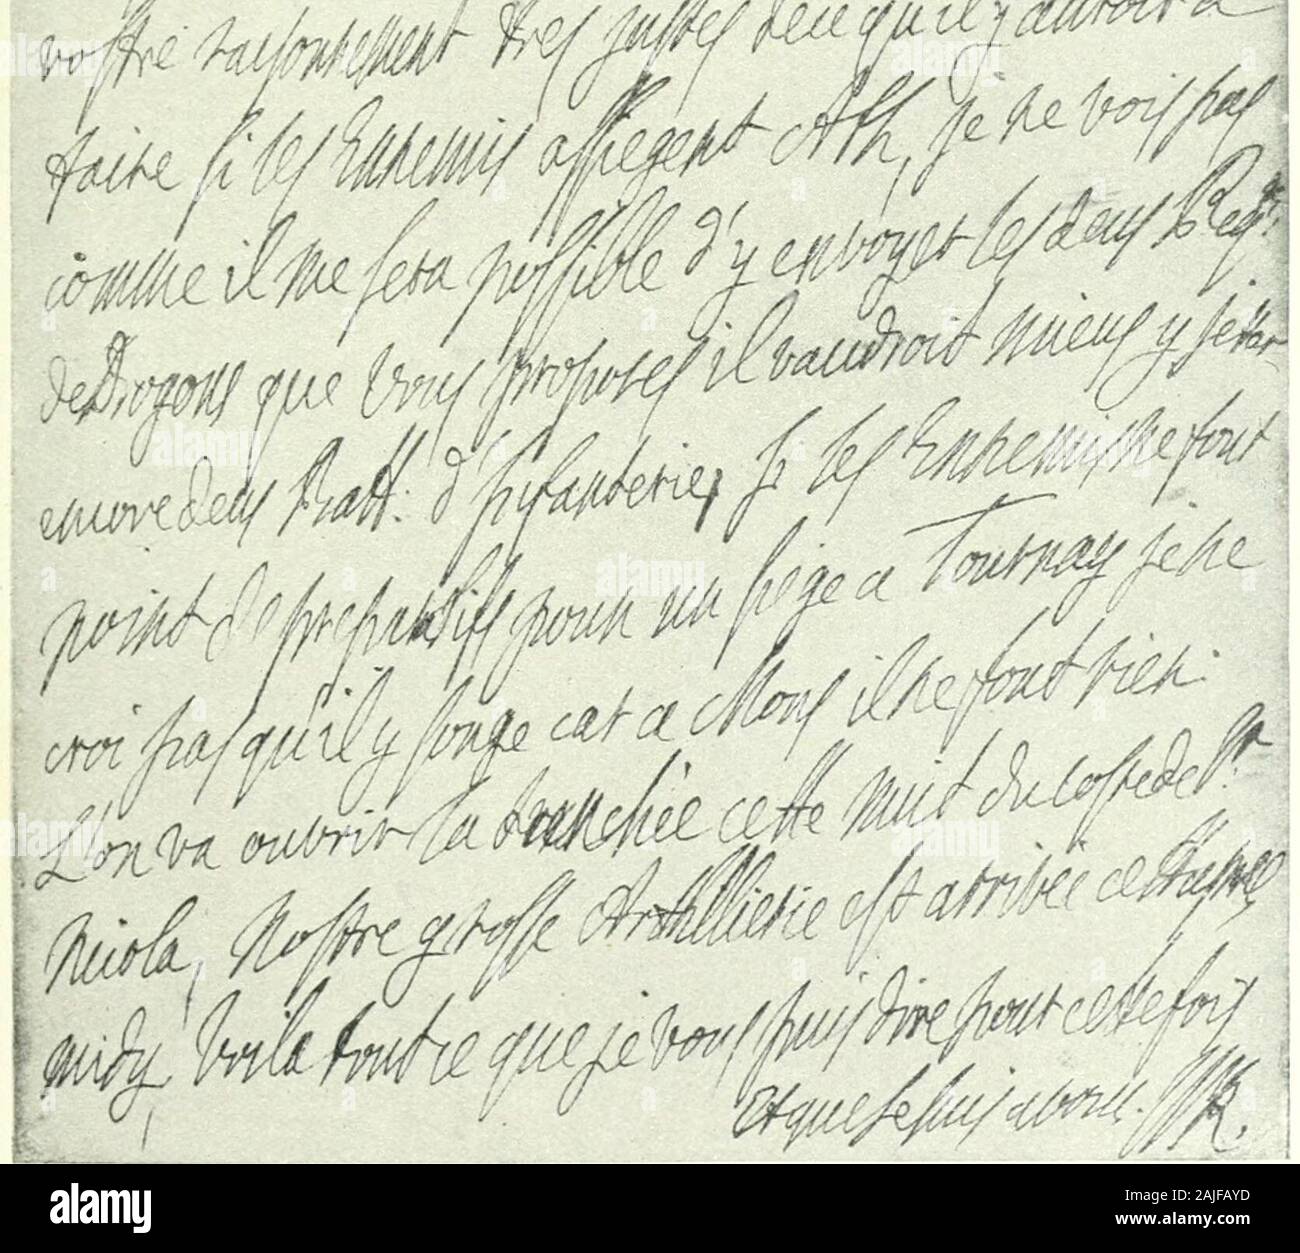 vostre raisonnement tres justes de ce qu'il y auroit a
faire si les Ennemis assiegent Ath, je ne vois pas
comme il me sera possible d'y envoyer les deus Regts
de Dragons que vous proposes il vaudroit mieus y jetter
encore deus Batt: d'Infanterie, si les Ennemis ne font
point de preparatifs pour un siege a Tournay je ne
croi pas qu'il y songe car a Mons il ne font rien.
L'on va ouvrir la tranchée cette nuit du costé de St
Nicola, nostre grosse Artillierie est arrivée
midy, voila tout ce que je vous puis dire pour cette fois
et que je suis a vous. WR.
alamy
Image ID: 2AJFAYD
www.alamy.com